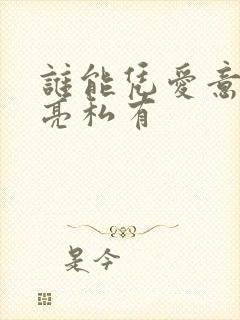 誰能凭愛意
亮私有
是今